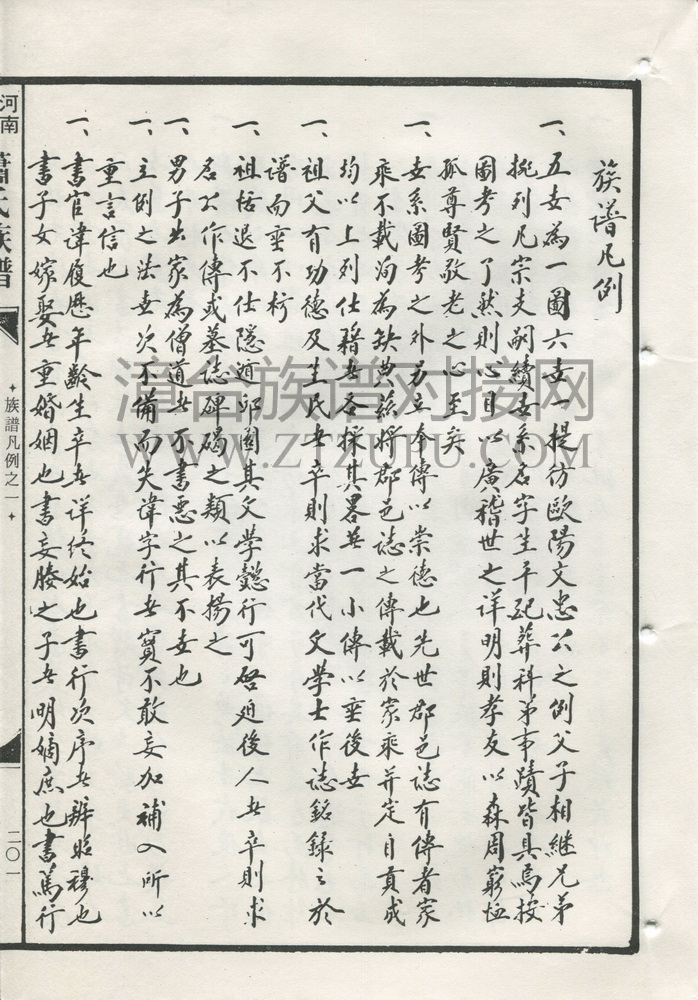 族譜凡例
一、五世為一圖六世一提彷歐陽文忠公之例父子相継兄弟
挨列凡宗支嗣續世系名字生平配葬科弟事蹟皆具焉按
圖考之了然則心目以廣稽世之詳明則孝友以森周窮恤
孤尊賢敬老之心至矣
一、世系圖考之外另立本傳以崇德也先世郡邑誌有傳者家
乘不載洵為缺典茲將郡邑誌之傳載於家乘并定自貢成
均以上列仕籍者各採其畧英一小傳以垂後世
一、祖父有功德及生民者卒則求當代文學士作誌銘錄之於
譜而垂不朽
一、祖恬退不仕隱逅邱園其文學懿行可啓迫後人者卒則求
名公作傳或墓誌碑碣之類以表揚之
一、男子出家為僧道者不書惡之其不世也
一、立例之法世次不備而失諱字行者實不敢妄加補入所以
重言信也
一、書官諱履歷年齡生卒者詳终始也書行次序者辨昭穆也
書子女嫁娶者重婚姻也書妾媵之子者明嫡庶也書篤行
河南
蕭氏族譜
族譜凡例之一
二〇一
漳台族谱对接网
WWW.ZTZUPU.COM